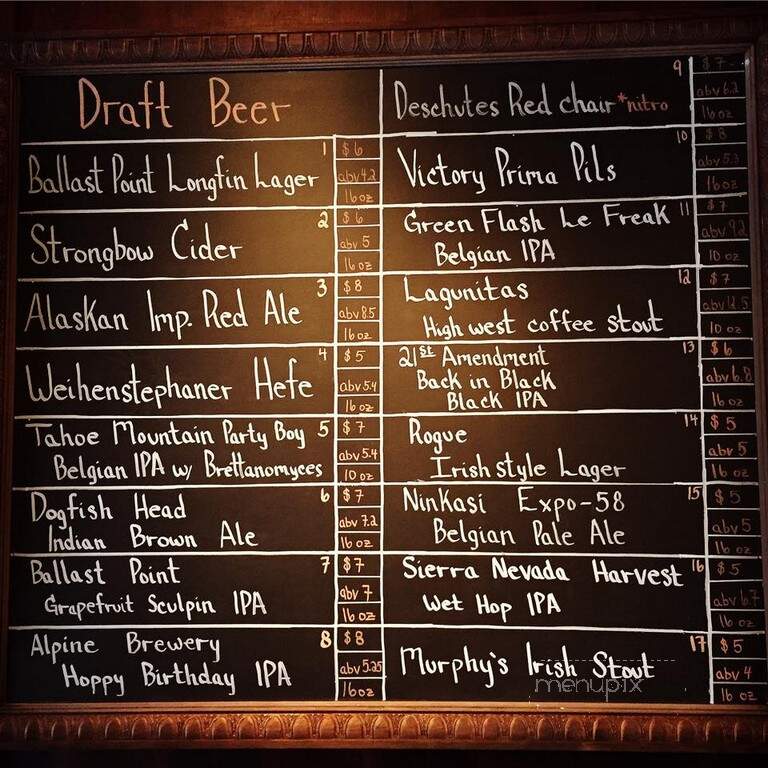 Draft Beer
1
Ballast Point Longfin Lager
$6
abv 4.2
16 oz
2
Strongbow Cider
$6
abv 5
16 oz
3
Alaskan Imp. Red Ale
$8
abv 8.5
16 oz
4
Weihenstephaner Hefe
$5
abv 5.4
16 oz
Tahoe Mountain Party Boy 5
Belgian IPA w/ Brettanomyces
$7
abv 5.4
10 oz
6
Dogfish Head
Indian Brown Ale
$7
abv 7.2
16 oz
Ballast Point 7
Grapefruit Sculpin IPA
$7
abv 7
16 oz
Alpine Brewery 8
Hoppy Birthday IPA
$8
abv 5.25
16 oz
9
Deschutes Red chair *nitro
$7
abv 6.2
16 oz
10
Victory Prima Pils
$8
abv 5.3
16 oz
Green Flash Le Freak 11
Belgian IPA
$7
abv 9.2
10 oz
12
Lagunitas
High west coffee stout
$7
abv 12.5
10 oz
13
21st Amendment
Back in Black
Black IPA
$6
abv 6.8
16 oz
14
Rogue
Irish style Lager
$5
abv 5
16 oz
Ninkasi Expo-58 15
Belgian Pale Ale
$5
abv 5
16 oz
Sierra Nevada Harvest 16
Wet Hop IPA
$5
abv 6.7
16 oz
17
Murphy's Irish Stout
$5
abv 4
16 oz
menupix